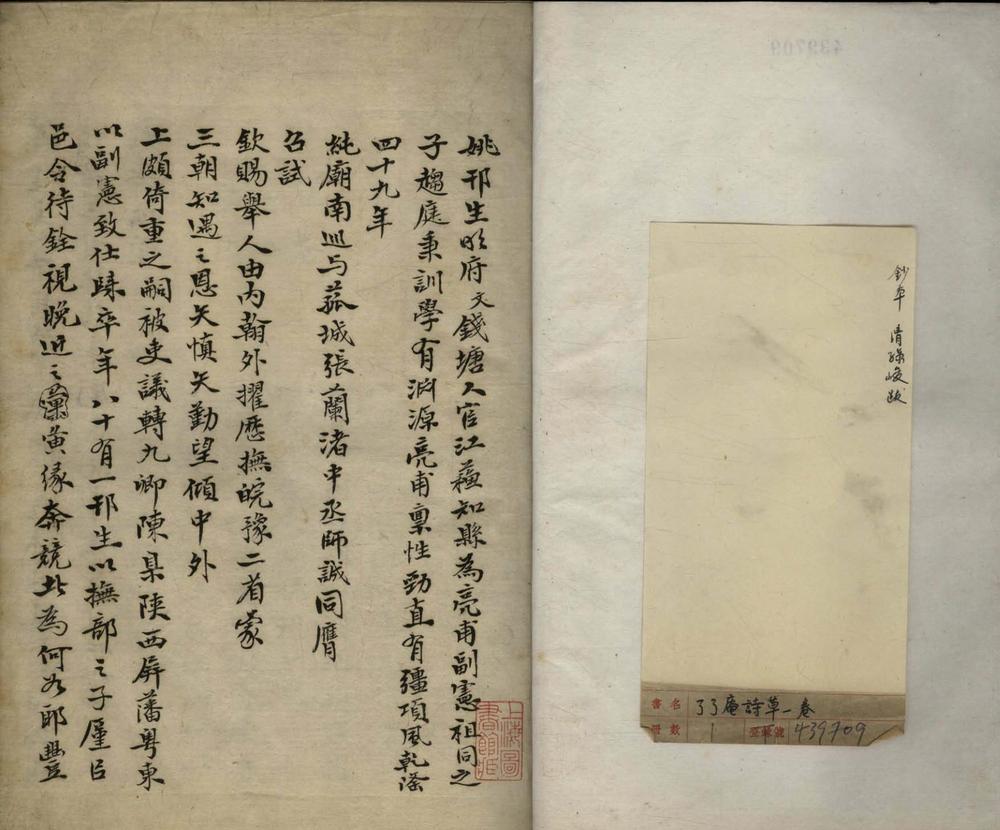 姚邗生明府文錢塘人官江蘇知縣為亮甫副憲祖同之
子趨庭秉訓學有淵源亮甫稟性勁直有彊項風乾隆
四十九年
純廟南巡与菰城張蘭渚中丞師誠同膺
召試
欽賜舉人由内翰外擢歷撫皖豫二省蒙
三朝知遇之恩矢慎矢勤望傾中外
上頗倚重之嗣被吏議轉九卿陳臬陝西屏藩粤東
以副憲致仕歸卒年八十有一邗生以撫部之子屢任
邑令待銓視晚近之夤緣奔競此為何如耶豐
鈔本 清
跋
書名 了了庵詩草一卷
冊數 1 登錄號 439709
439709
上海圖
書館藏